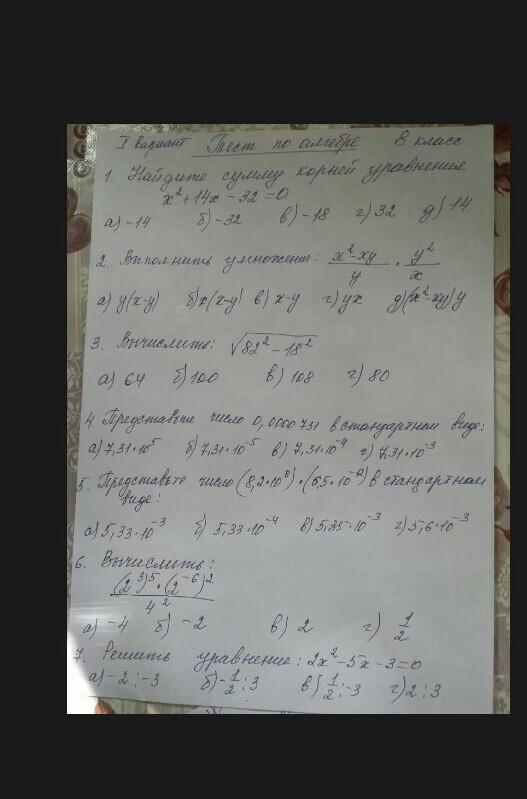 I вариант Тест по алгебре 8 класс
1. Найдите сумму корней уравнения
x²+14x-32=0
а) -14 б) -32 в) -18 г) 32 д) 14
2. Выполнить умножение: (x²-xy)/y · y²/x
а) y(x-y) б) x(x-y) в) x-y г) yx д) (x²-xy)y
3. Вычислить: √(82²-18²)
а) 64 б) 100 в) 108 г) 80
4. Представьте число 0,0000731 в стандартном виде:
а) 7,31·10⁵ б) 7,31·10⁻⁵ в) 7,31·10⁻⁴ г) 7,31·10⁻³
5. Представьте число (8,2·10⁸)·(6,5·10⁻¹²) в стандартном
виде:
а) 5,33·10⁻³ б) 5,33·10⁻⁴ в) 5,35·10⁻³ г) 5,6·10⁻³
6. Вычислить:
(2³)⁵·(2⁻⁶)²/4²
а) -4 б) -2 в) 2 г) 1/2
7. Решить уравнение: 2x²-5x-3=0
а) -2; -3 б) -1/2; 3 в) 1/2; -3 г) 2; 3